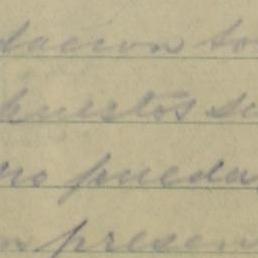 dacion to
puestos su
no pueda
n presen